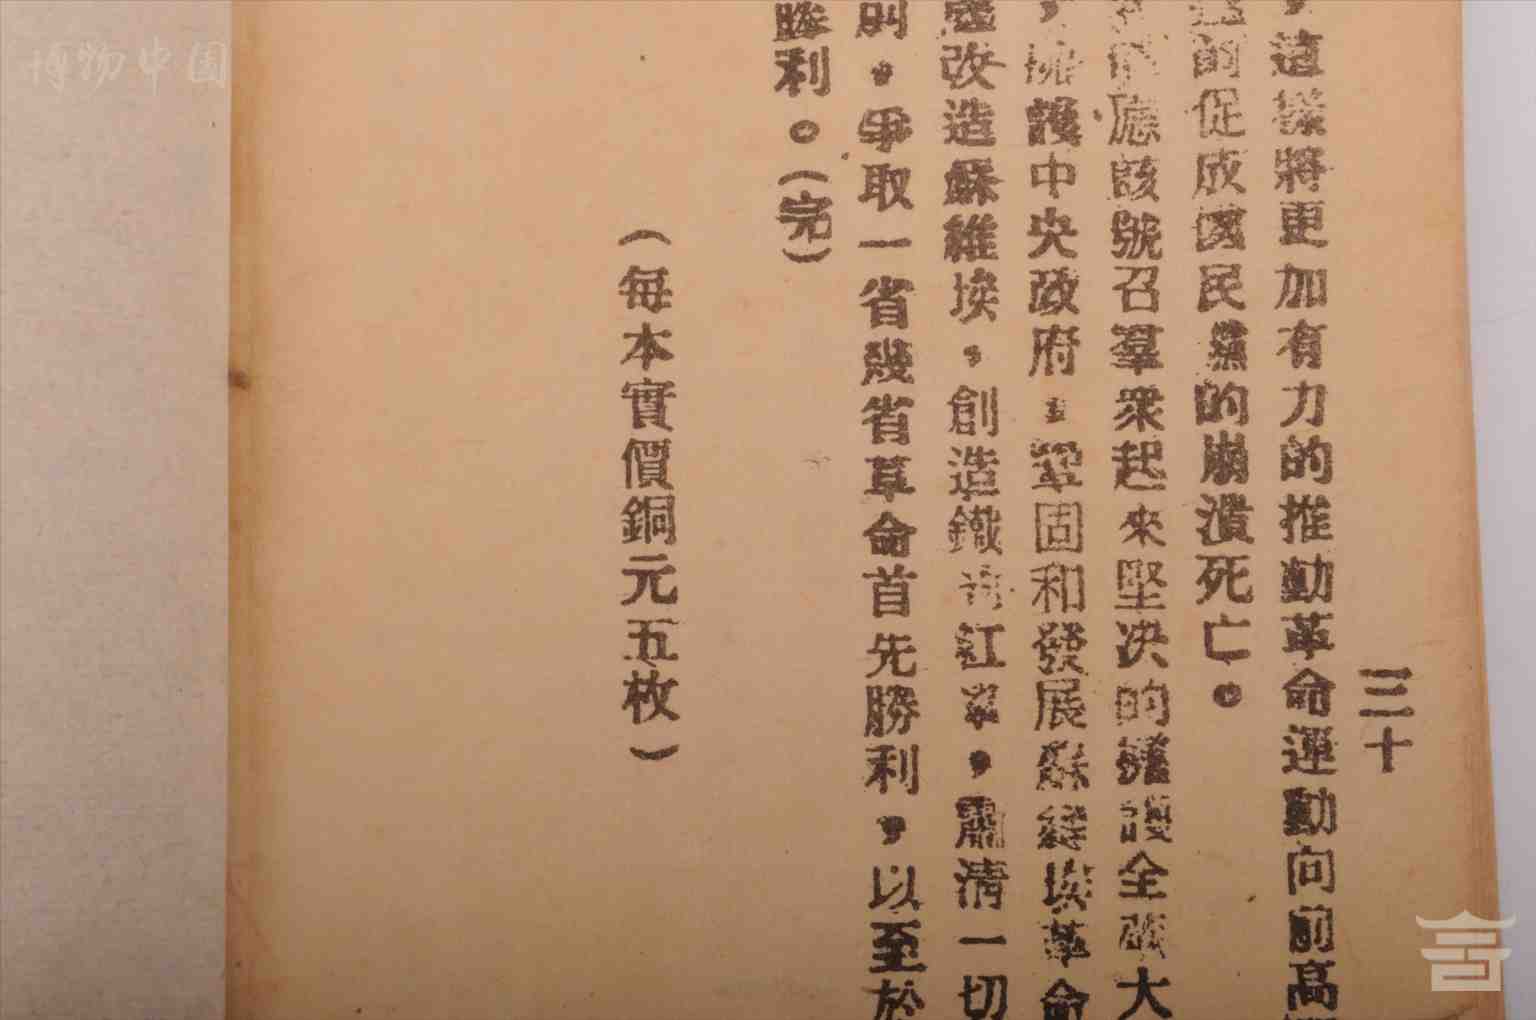 三十
，這樣將更加有力的推動革命運動向前高
的促成國民黨的崩潰死亡。
應該號召羣衆起來堅决的擁護全蘇大
，擁護中央政府，鞏固和發展蘇維埃革命
改造蘇維埃，創造鐵的紅軍，肅清一切
則，爭取一省幾省革命首先勝利，以至於
勝利。（完）
（每本實價銅元五枚）
博物中国